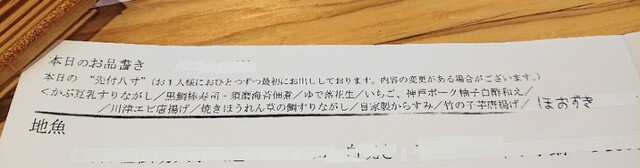 本日のお品書き
本日の “先付八寸”（お１人様におひとつずつ最初にお出ししております。内容の変更がある場合がございます。）
＜かぶ豆乳すりながし／黒鯛棒寿司・須磨海苔佃煮／ゆで落花生／いちご、神戸ポーク柚子白酢和え／
／川津エビ唐揚げ／焼きほうれん草の鯛すりながし／自家製からすみ／竹の子芋唐揚げ／ ほおずき
地魚